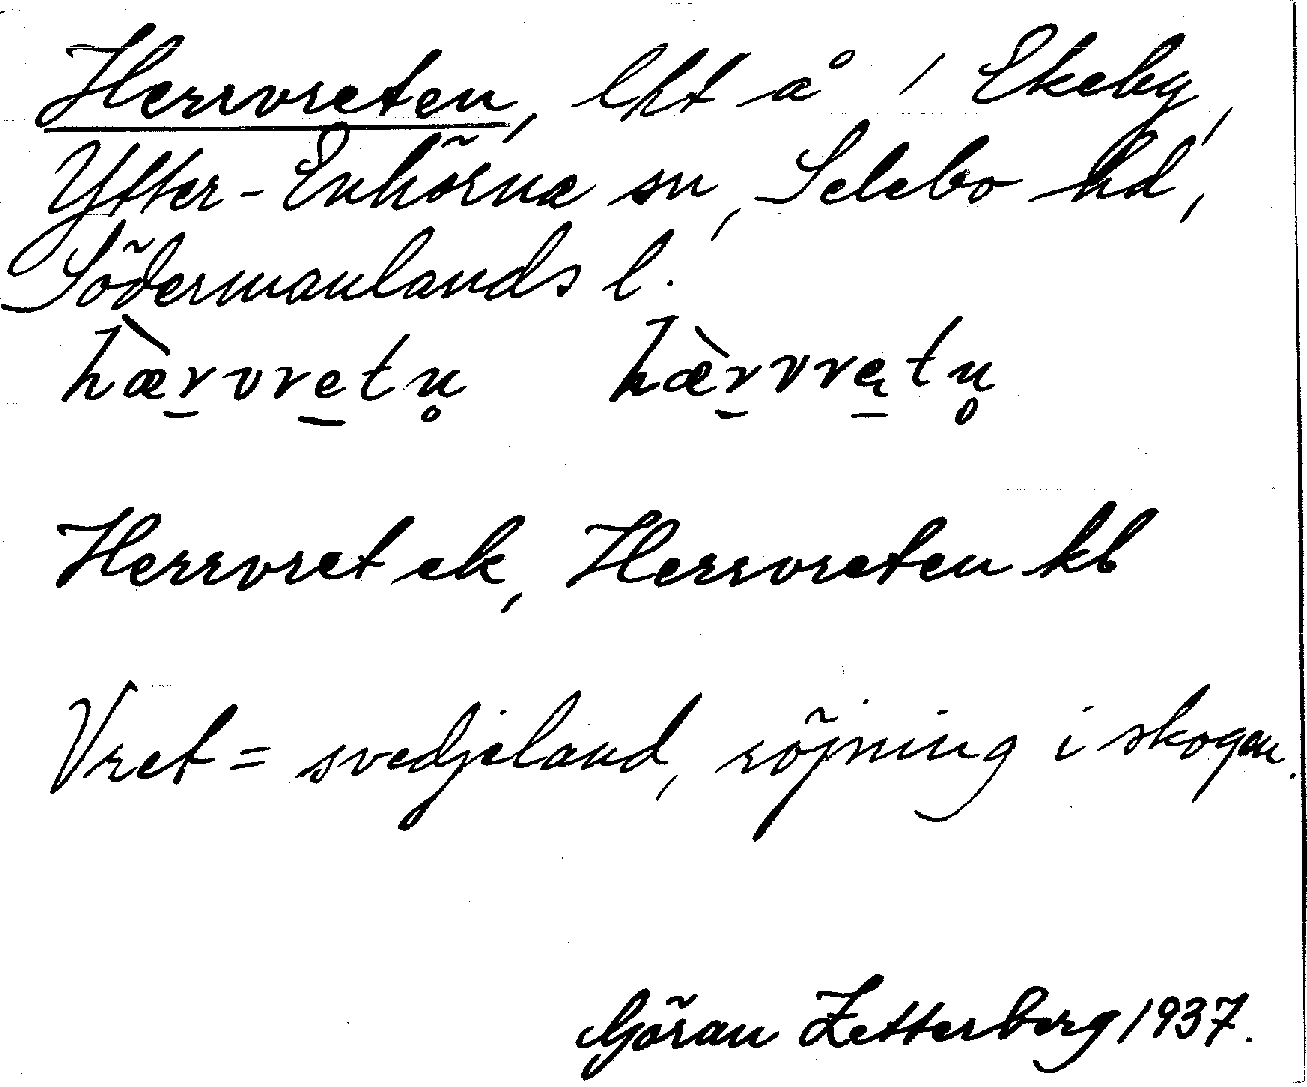 Herrvreten, lht å / Ekeby,
Ytter-Enhörna sn, Selebo hd,
Södermanlands l.
hæ̀r̠vre̠tn̥ hæ̀r̠vrę̠tn̥
Herrvret ek, Herrvreten kb
Vret = svedjeland, röjning i skogen.
Göran Zetterberg 1937.